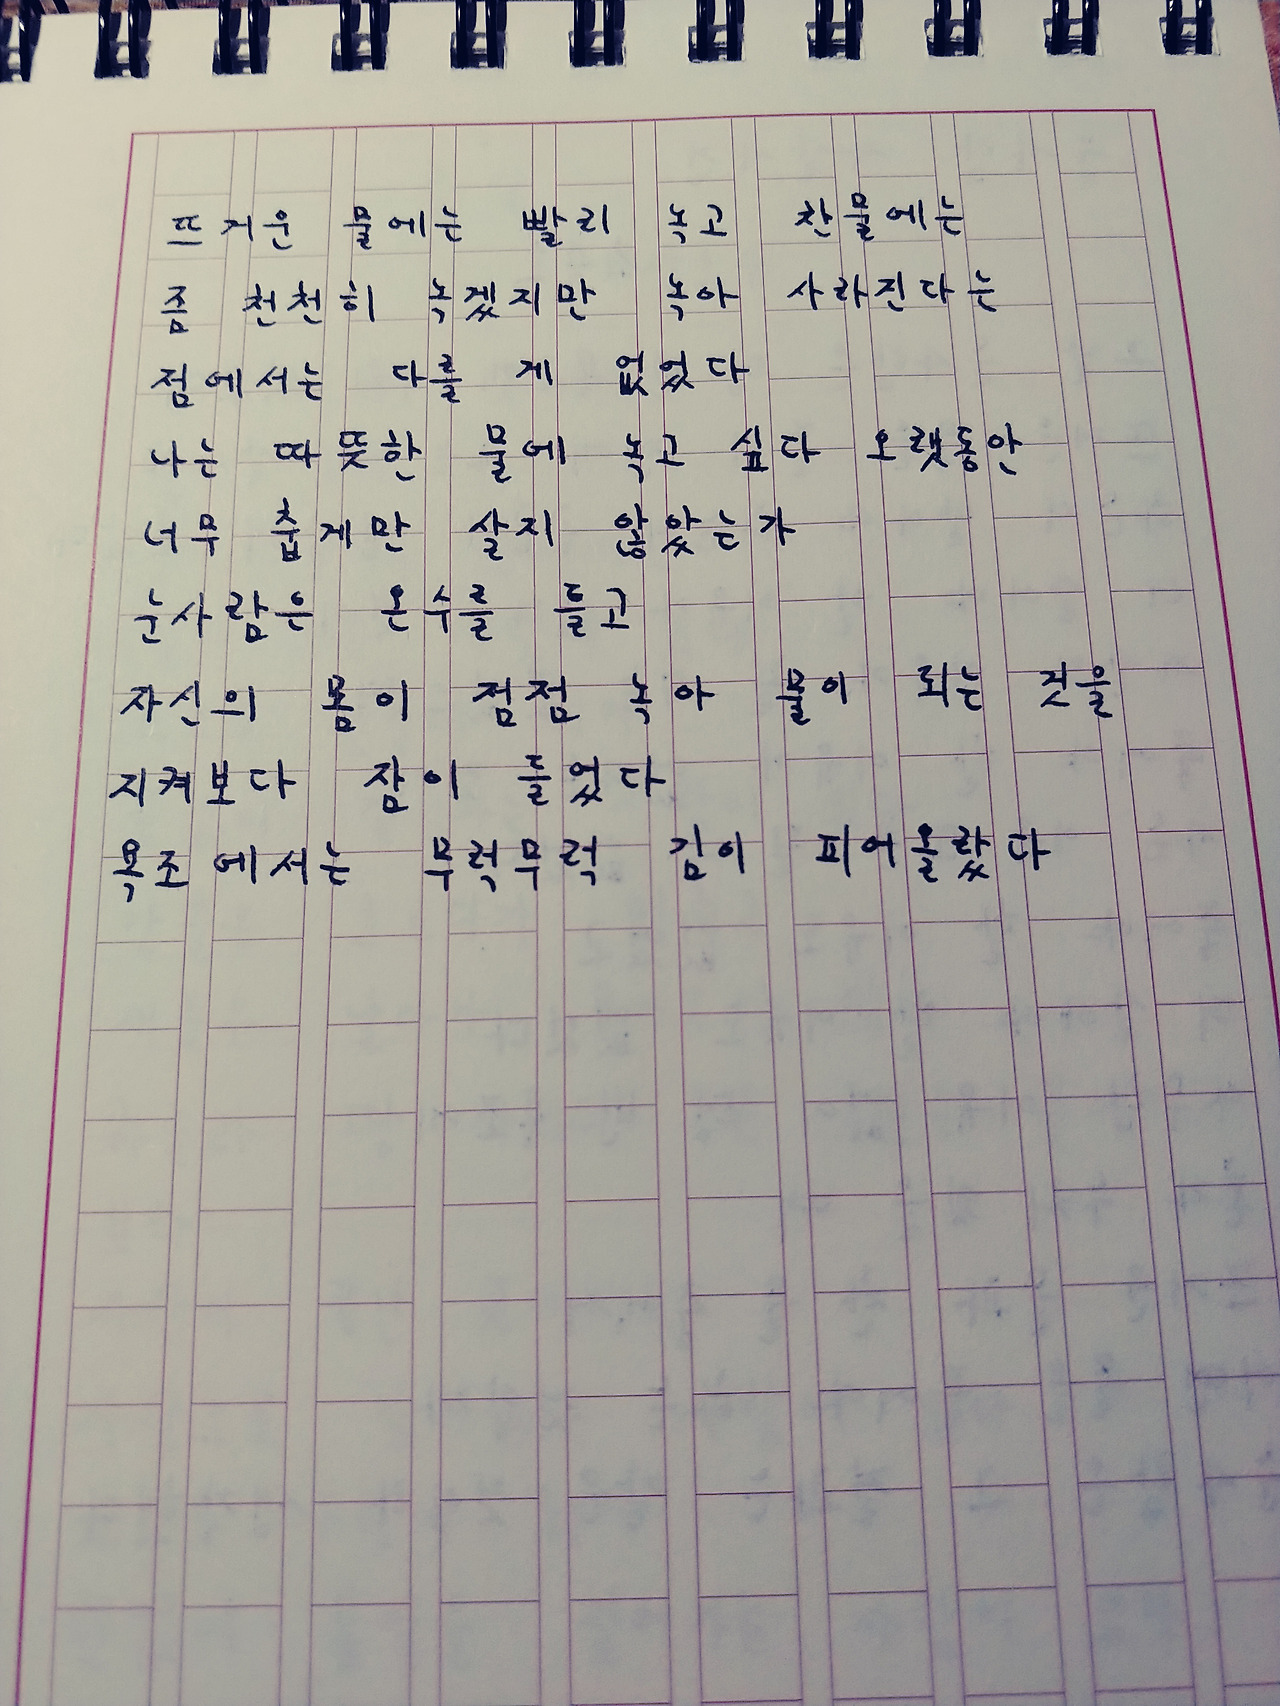 뜨거운 물에는 빨리 녹고 찬물에는
좀 천천히 녹겠지만 녹아 사라진다는
점에서는 다를 게 없었다
나는 따뜻한 물에 녹고 싶다 오랫동안
너무 춥게만 살지 않았는가
눈사람은 온수를 틀고
자신의 몸이 점점 녹아 물이 되는 것을
지켜보다 잠이 들었다
욕조에서는 무럭무럭 김이 피어올랐다